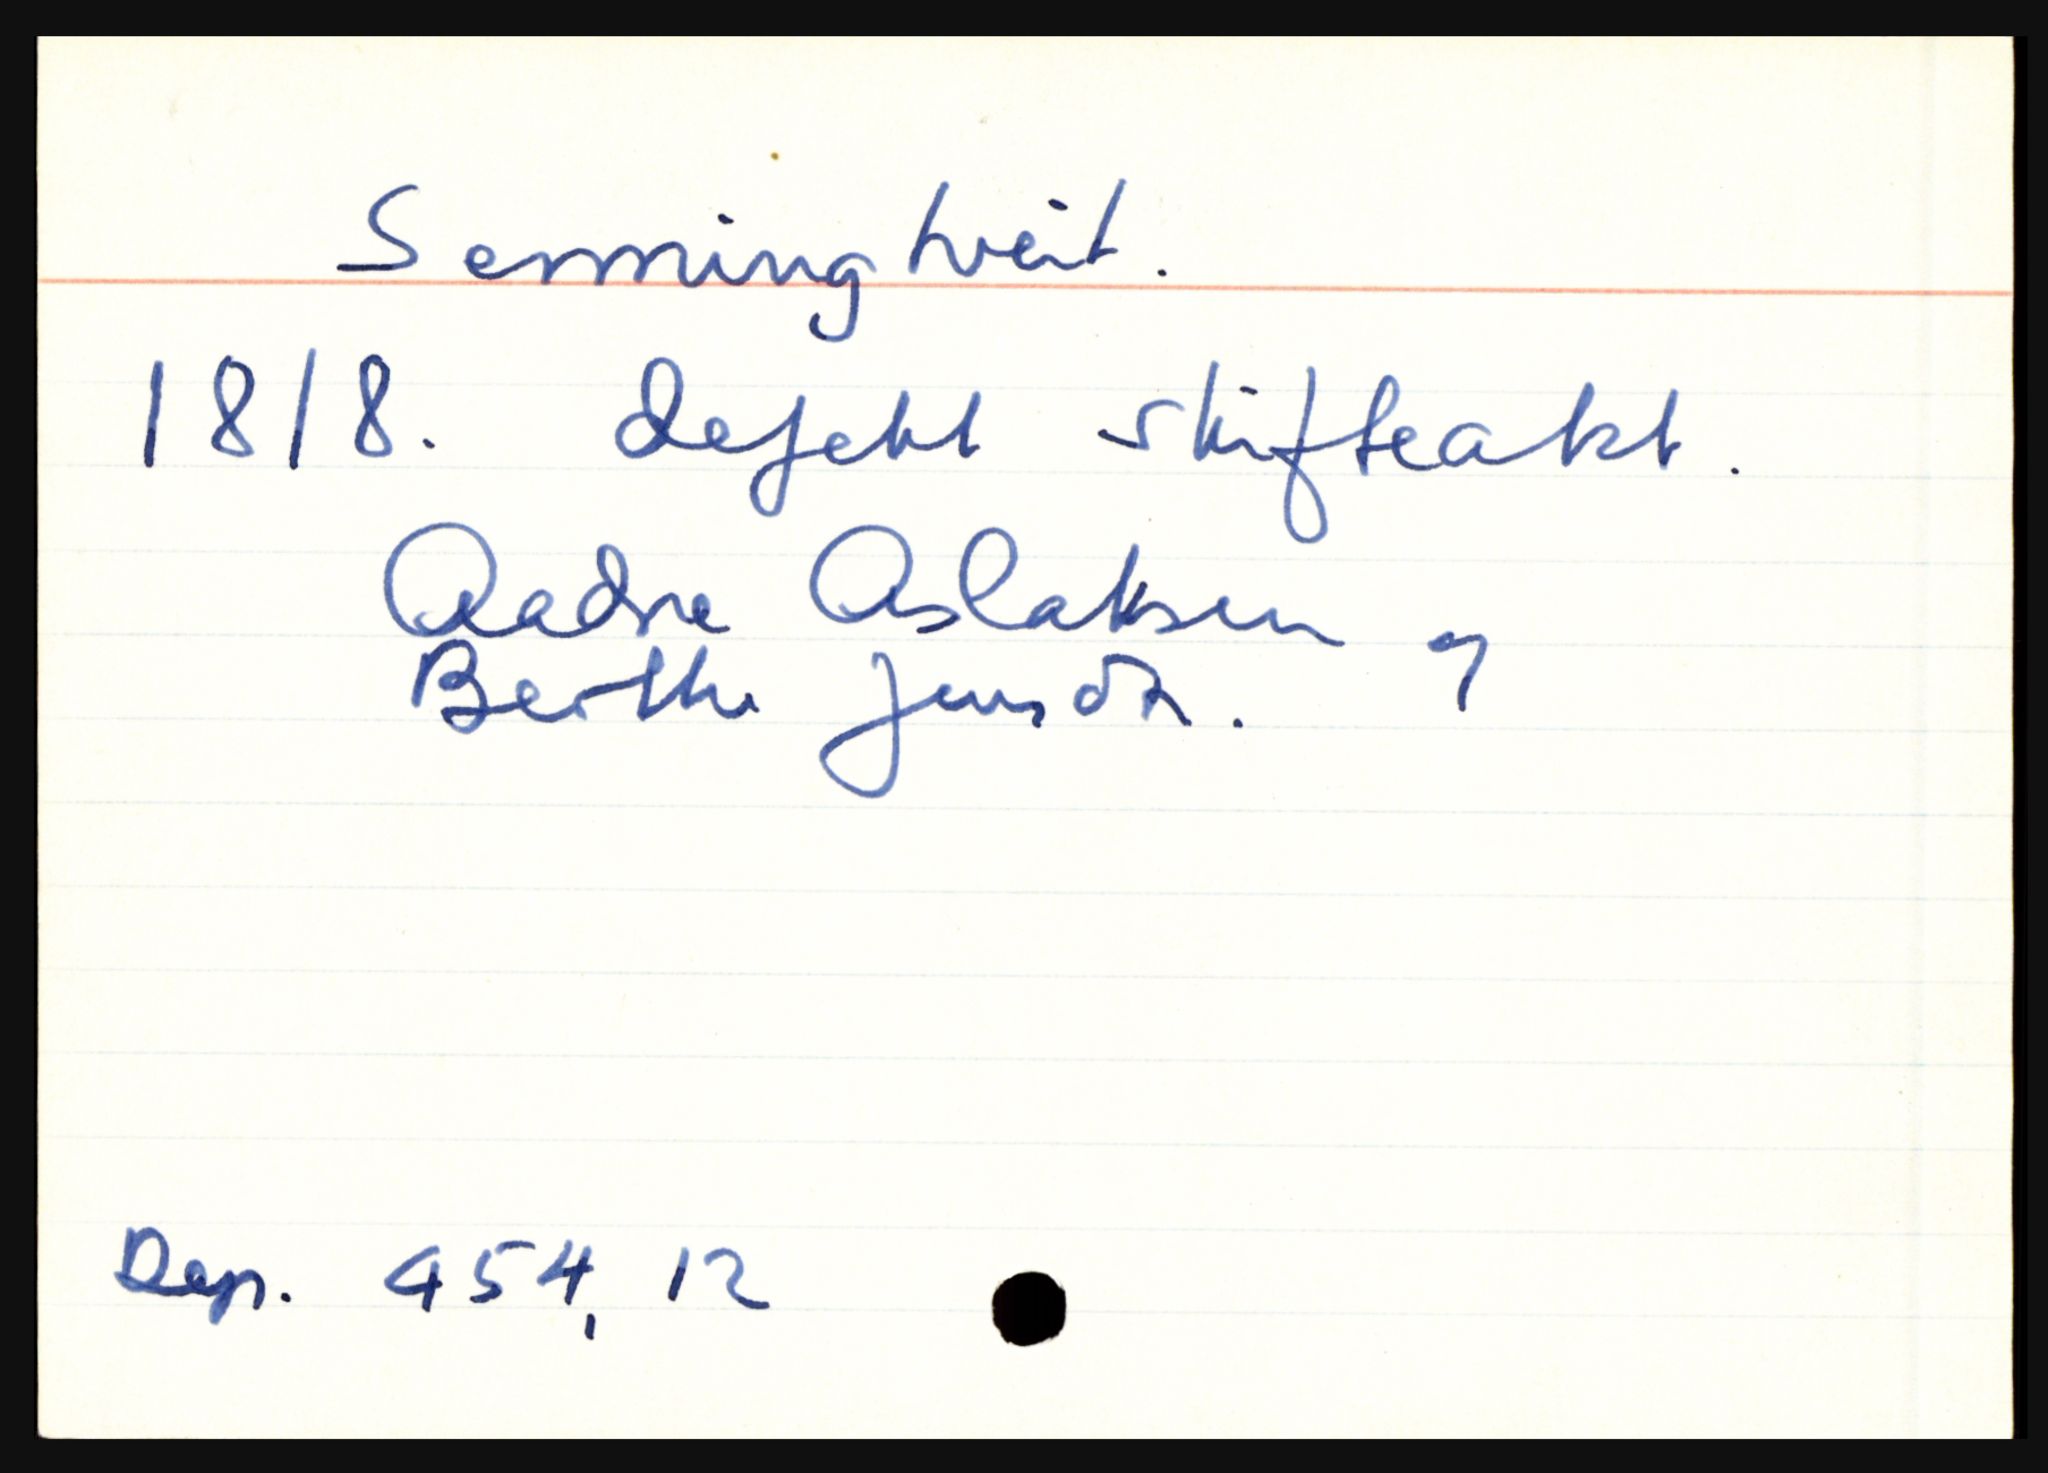 Senningtveit.
1818. defekt skifteakt.
Aadne Aslaksen og
Berthe Jensdtr.
Dep. 454, 12